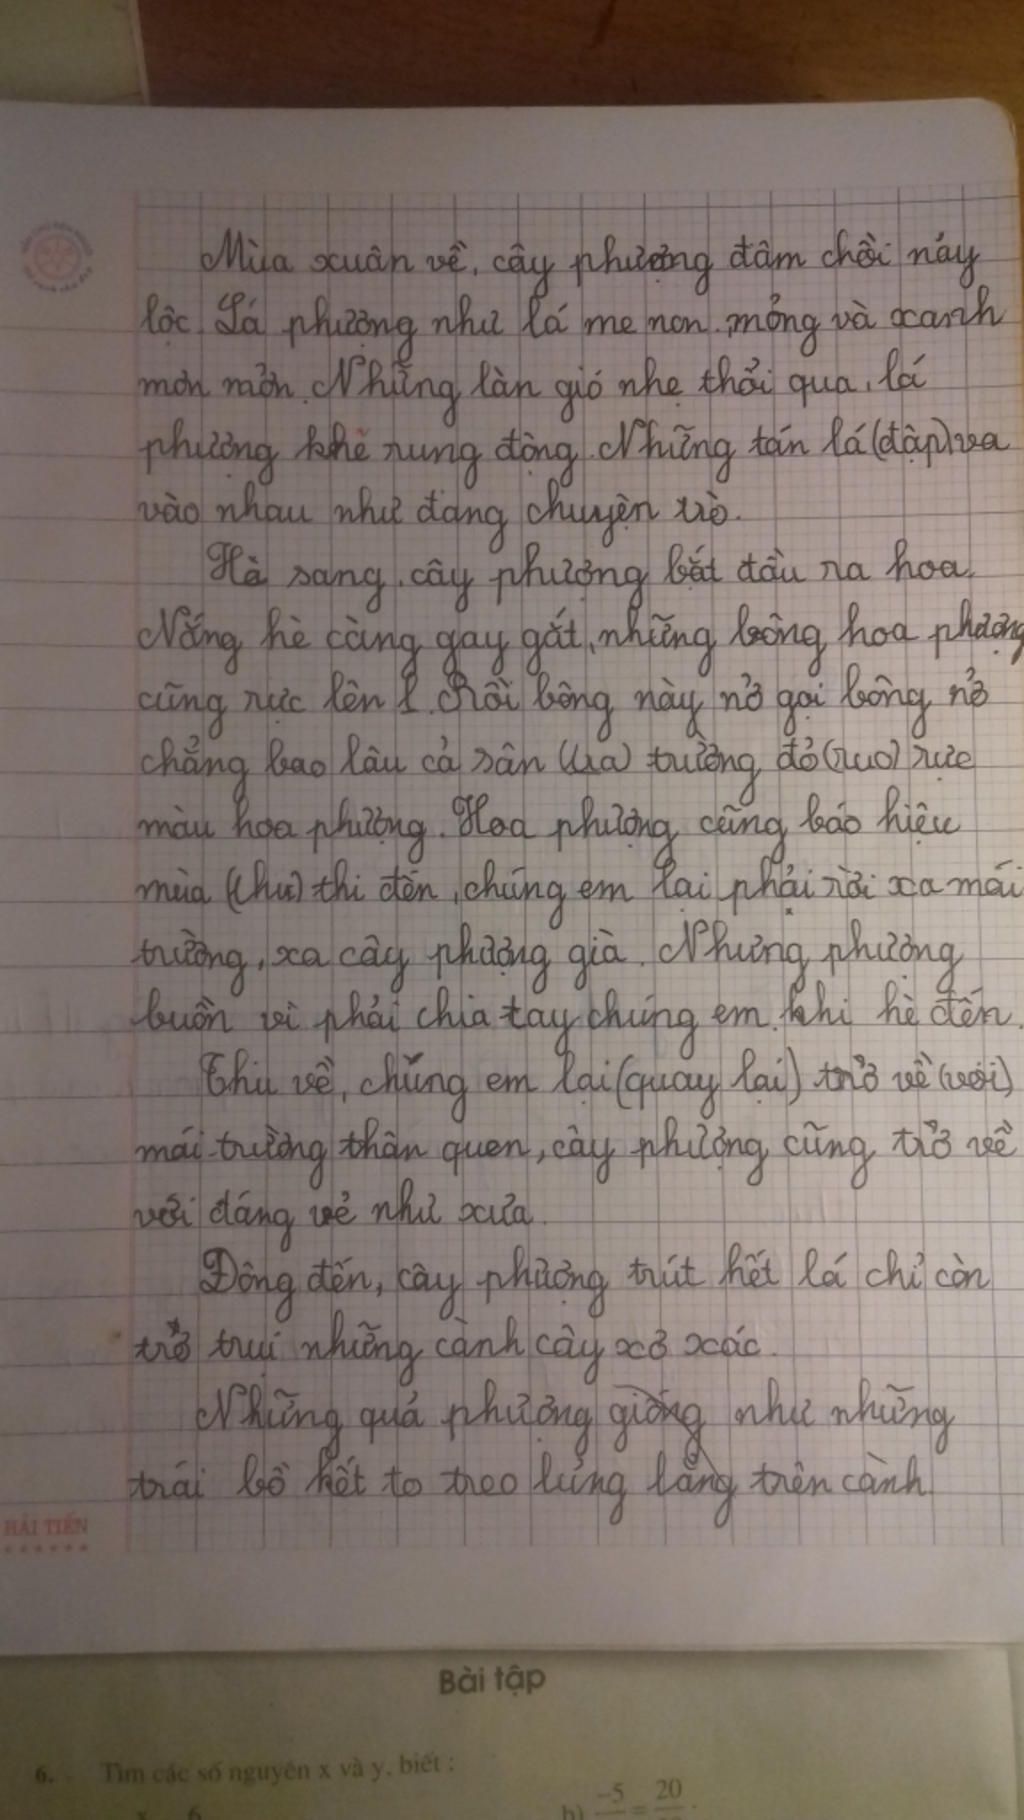 Mùa xuân về, cây phượng đâm chồi nảy
lộc. Lá phượng như lá me non, mỏng và xanh
mơn mởn. Những làn gió nhẹ thổi qua, lá
phượng khẽ rung động. Những tán lá (đập) va
vào nhau như đang chuyện trò.
Hè sang, cây phượng bắt đầu ra hoa.
Nắng hè càng gay gắt, những bông hoa phượng
cũng rực lên. Rồi bông này nở gọi bông nở
chẳng bao lâu cả sân (tra) trường đỏ (ruo) rực
màu hoa phượng. Hoa phượng cũng báo hiệu
mùa (thu) thi đến, chúng em lại phải rời xa mái
trường, xa cây phượng già. Nhưng phượng
buồn vì phải chia tay chúng em khi hè đến.
Thu về, chúng em lại (quay lại) trở về (với)
mái trường thân quen, cây phượng cũng trở về
với dáng vẻ như xưa.
Đông đến, cây phượng trút hết lá chỉ còn
trơ trụi những cành cây xơ xác.
Những quả phượng giống như những
trái bồ kết to treo lủng lẳng trên cành.
HẢI TIẾN
Bài tập
6. Tìm các số nguyên x và y, biết :
x 6
b) -5 = 20